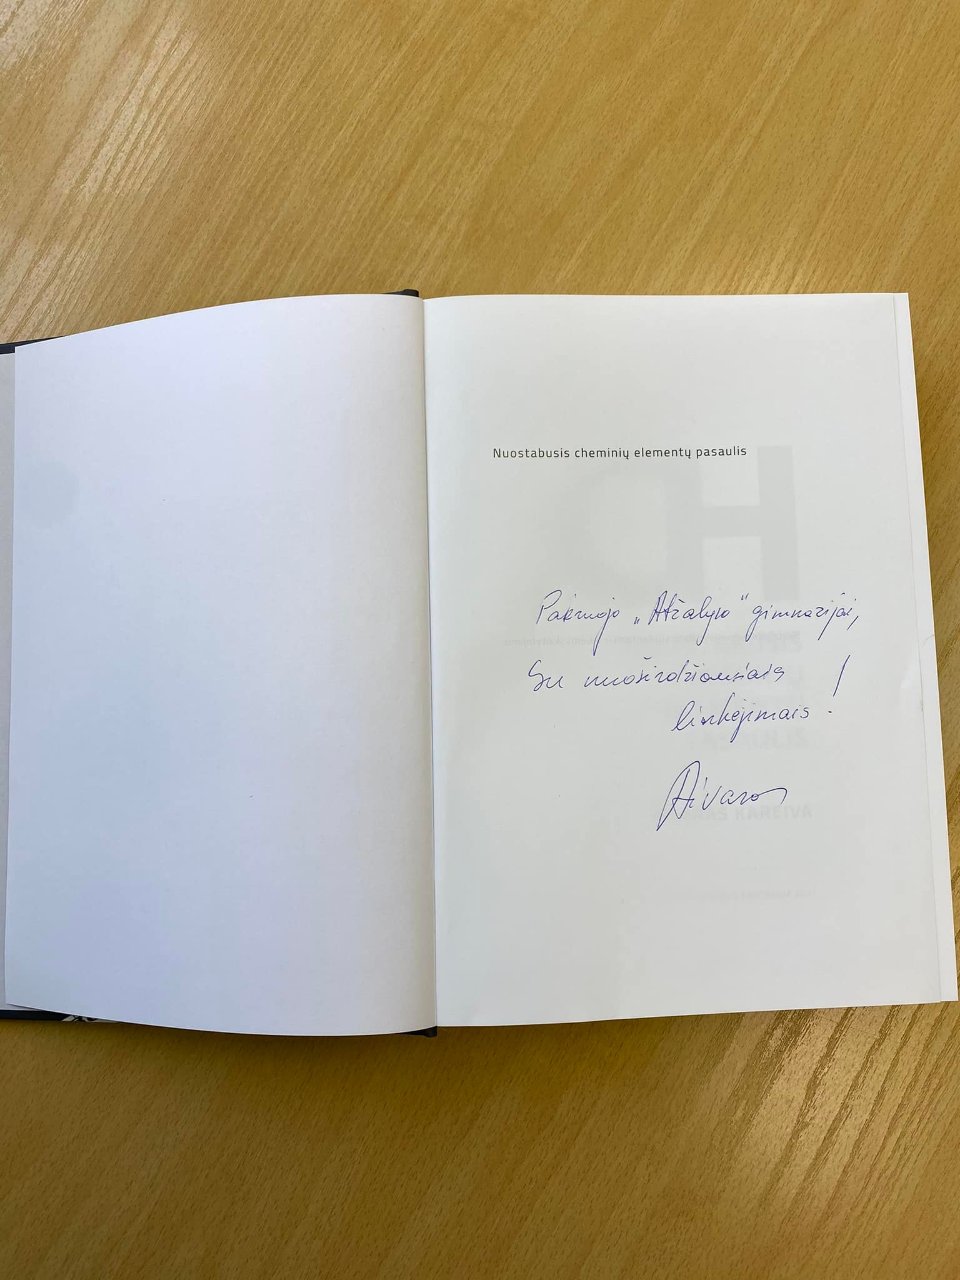 Nuostabusis cheminių elementų pasaulis
Pakruojo „Atžalyno“ gimnazijai,
Su nuoširdžiausiais
linkėjimais!
Aivaras
KAREIVA